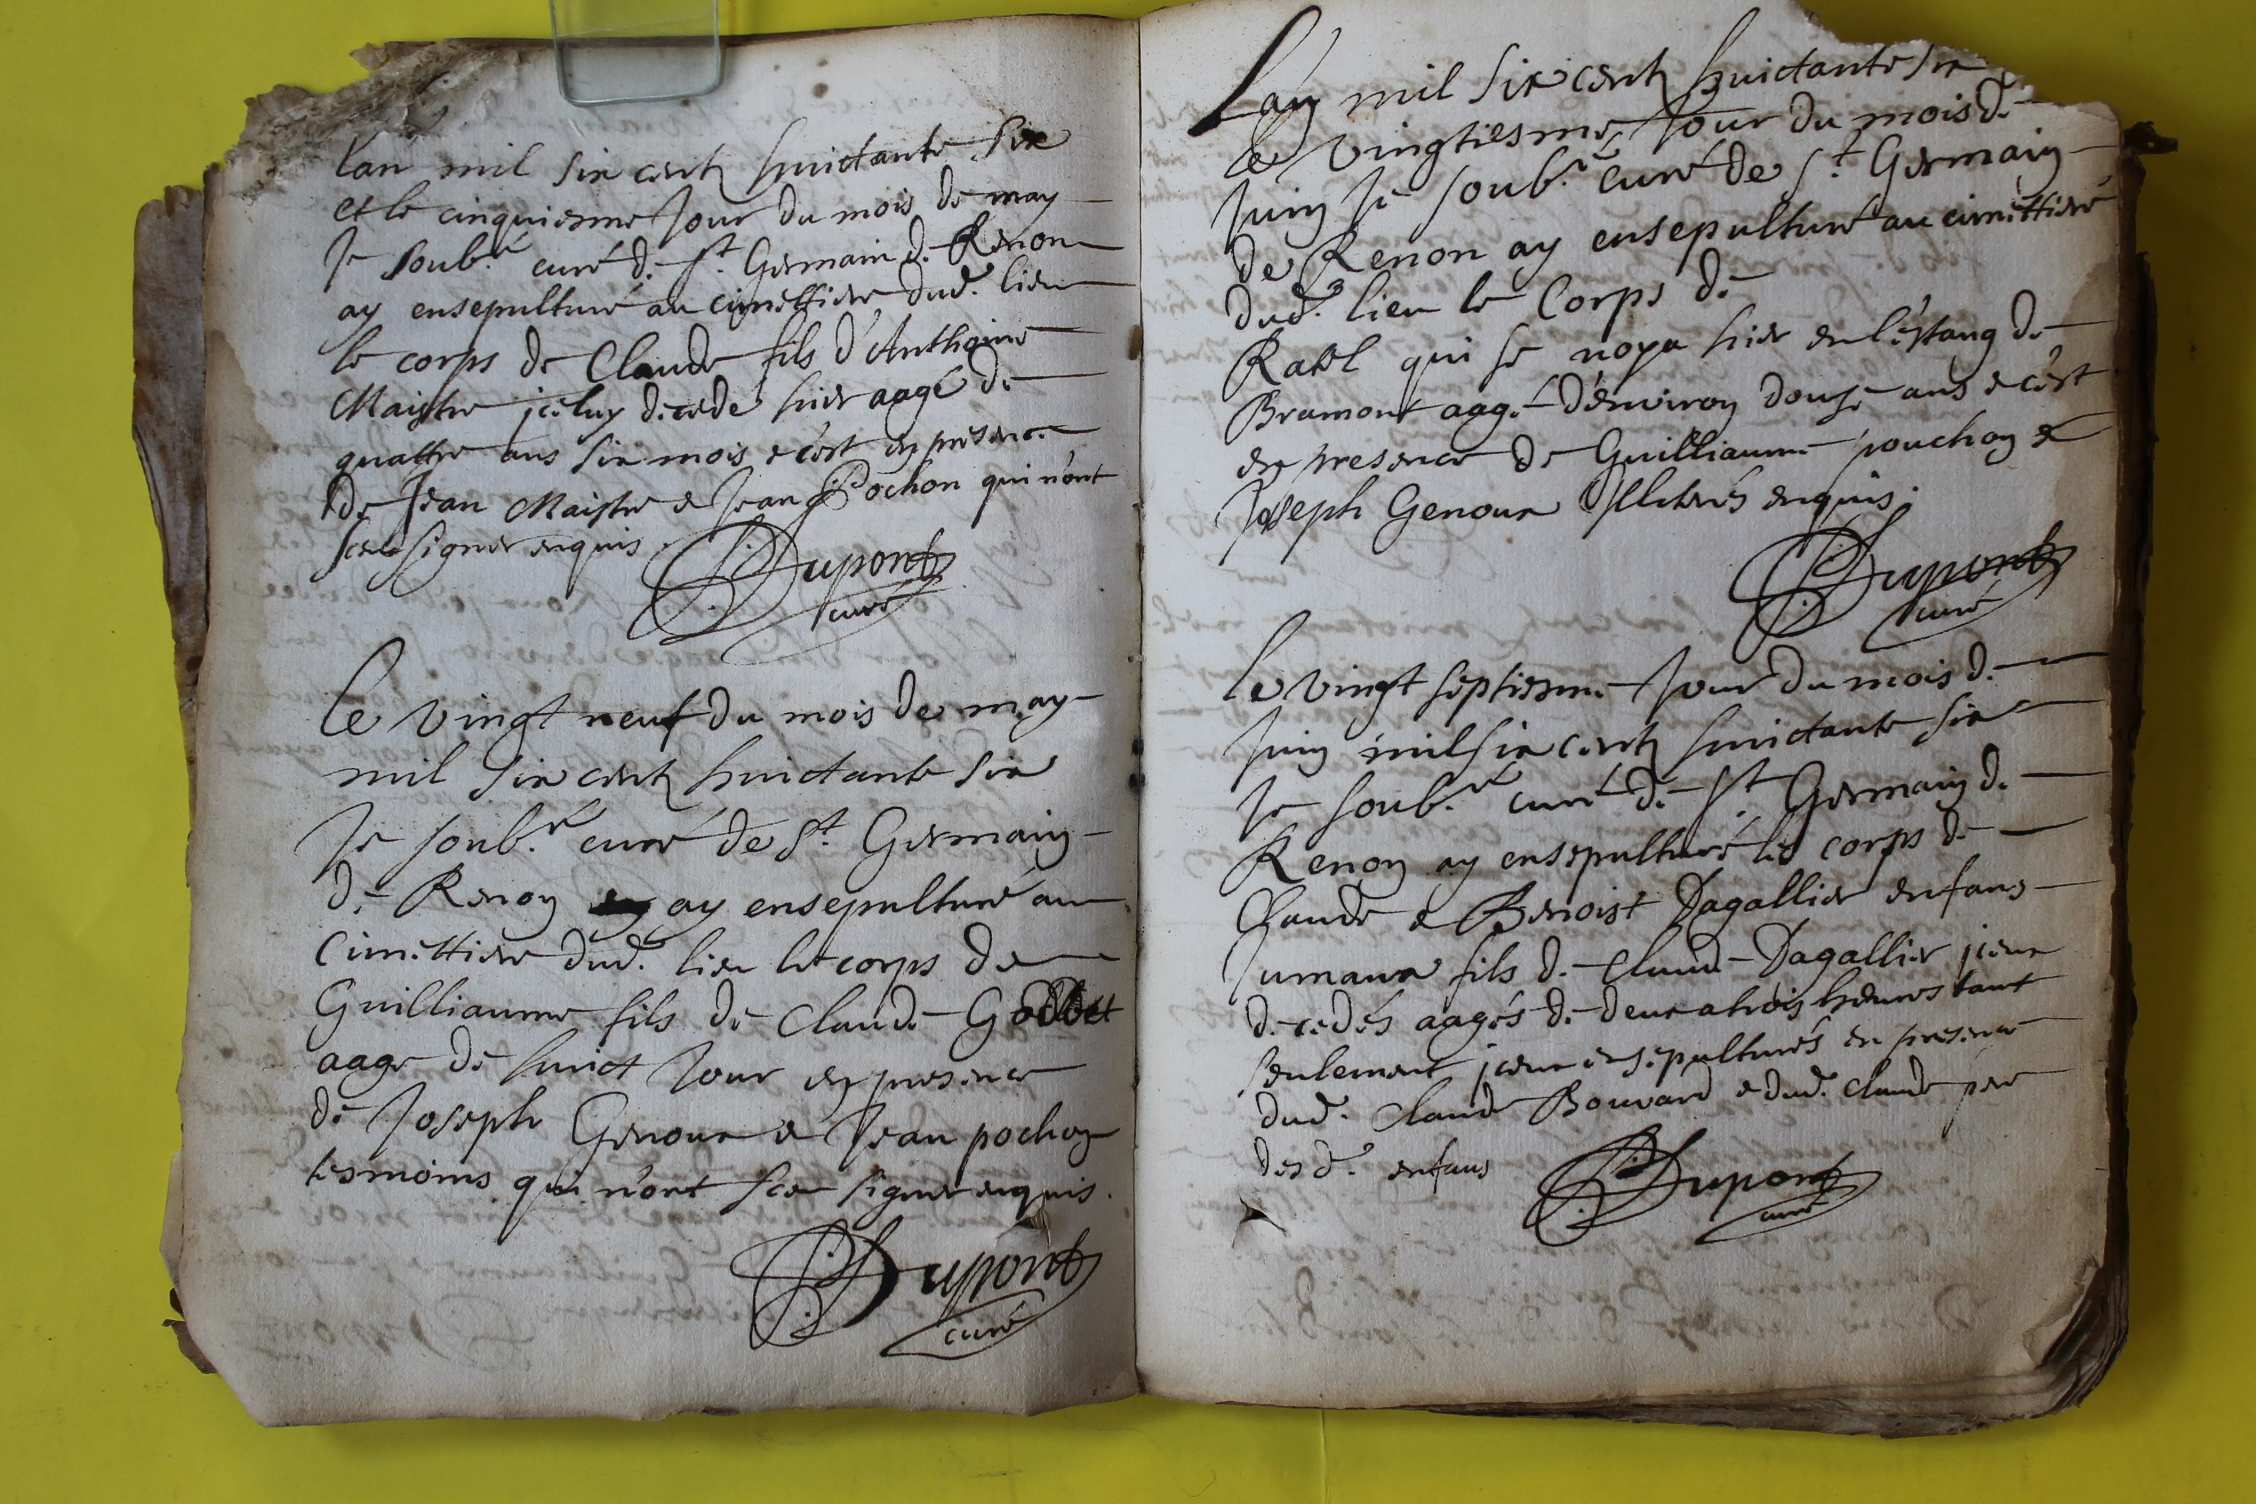 Lan mil six centz huictante six
et le cinquiesme Jour du mois de may
Je soub.é curé de St. Germain de Renon
ay ensepulturé au cimettiere dud. lieu
le corps de Claude fils d'Anthoine
Maistre jceluy decedé hier aagé de
quattre ans six mois e c'est en presence
de Jean Maistre e Jean Pochon qui n'ont
sceu signer enquis.
Dupont
curé
Le vingt neuf du mois de may
mil six centz huictante six
Je soub.é curé de St. Germain
de Renon ay ensepulturé au
Cimettiere dud. lieu le corps de
Guilliaume fils de Claude
aage de huict Jour en presence
de Joseph Genoux e Jean pochon
tesmoins qui n'ont sceu signer enquis.
Dupont
curé
Lan mil six centz huictante six
le vingtiesme Jour du mois de
Juin Je soub.é curé de St. Germain
de Renon ay ensepulturé au cimettiere
dud. lieu le Corps de
qui se noya hier en l'estang de
Bramont aagé d'environ douse ans e c'est
en presence de Guilliaume pouchon e
Joseph Genoux Jlliterés enquis.
Dupont
curé
le vingt septiesme Jour du mois de
Juin mil six centz huictante six
Je soub.é curé de St. Germain de
Renon ay ensepulturé les corps de
Claude e Benoist Dagallier enfans
Jumaux fils de Claude Dagallier jceux
decedés aagés de deux a trois heures tant
seulement jceux ensepulturés en presence
dud. Claude Bouvard e dud. Claude pere
desd. enfans
Dupont
curé